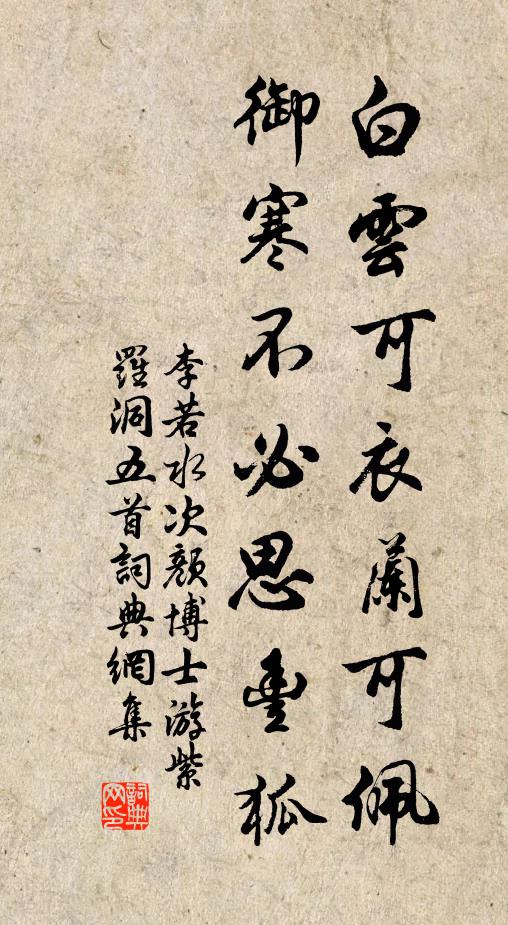 白雲可衣蘭可佩
御寒不必思豐狐
李若水次顏博士游紫
羅洞五首詞典網集
詞典
网印